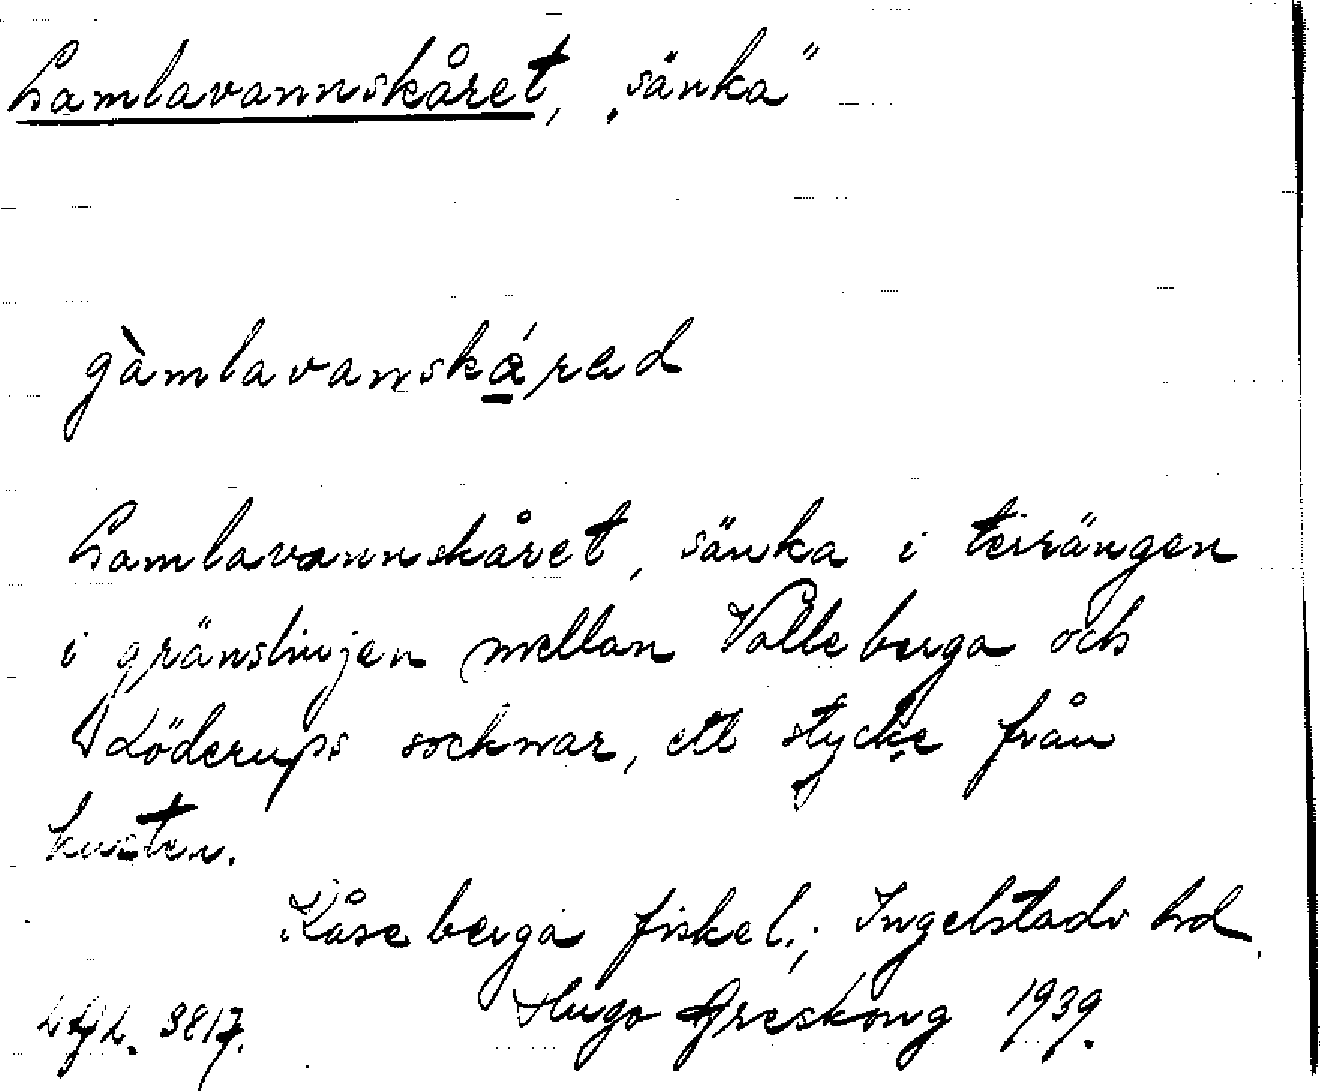 Gamlavannskåret, „sänka”
gàmlavanská̱rad
Gamlavannskåret, sänka i terrängen
i gränslinjen mellan Valleberga och
Löderups socknar, ett stycke från
kusten.
Kåseberga fiskel.; Ingelstads hd.
3817. Hugo Areskoug 1939.